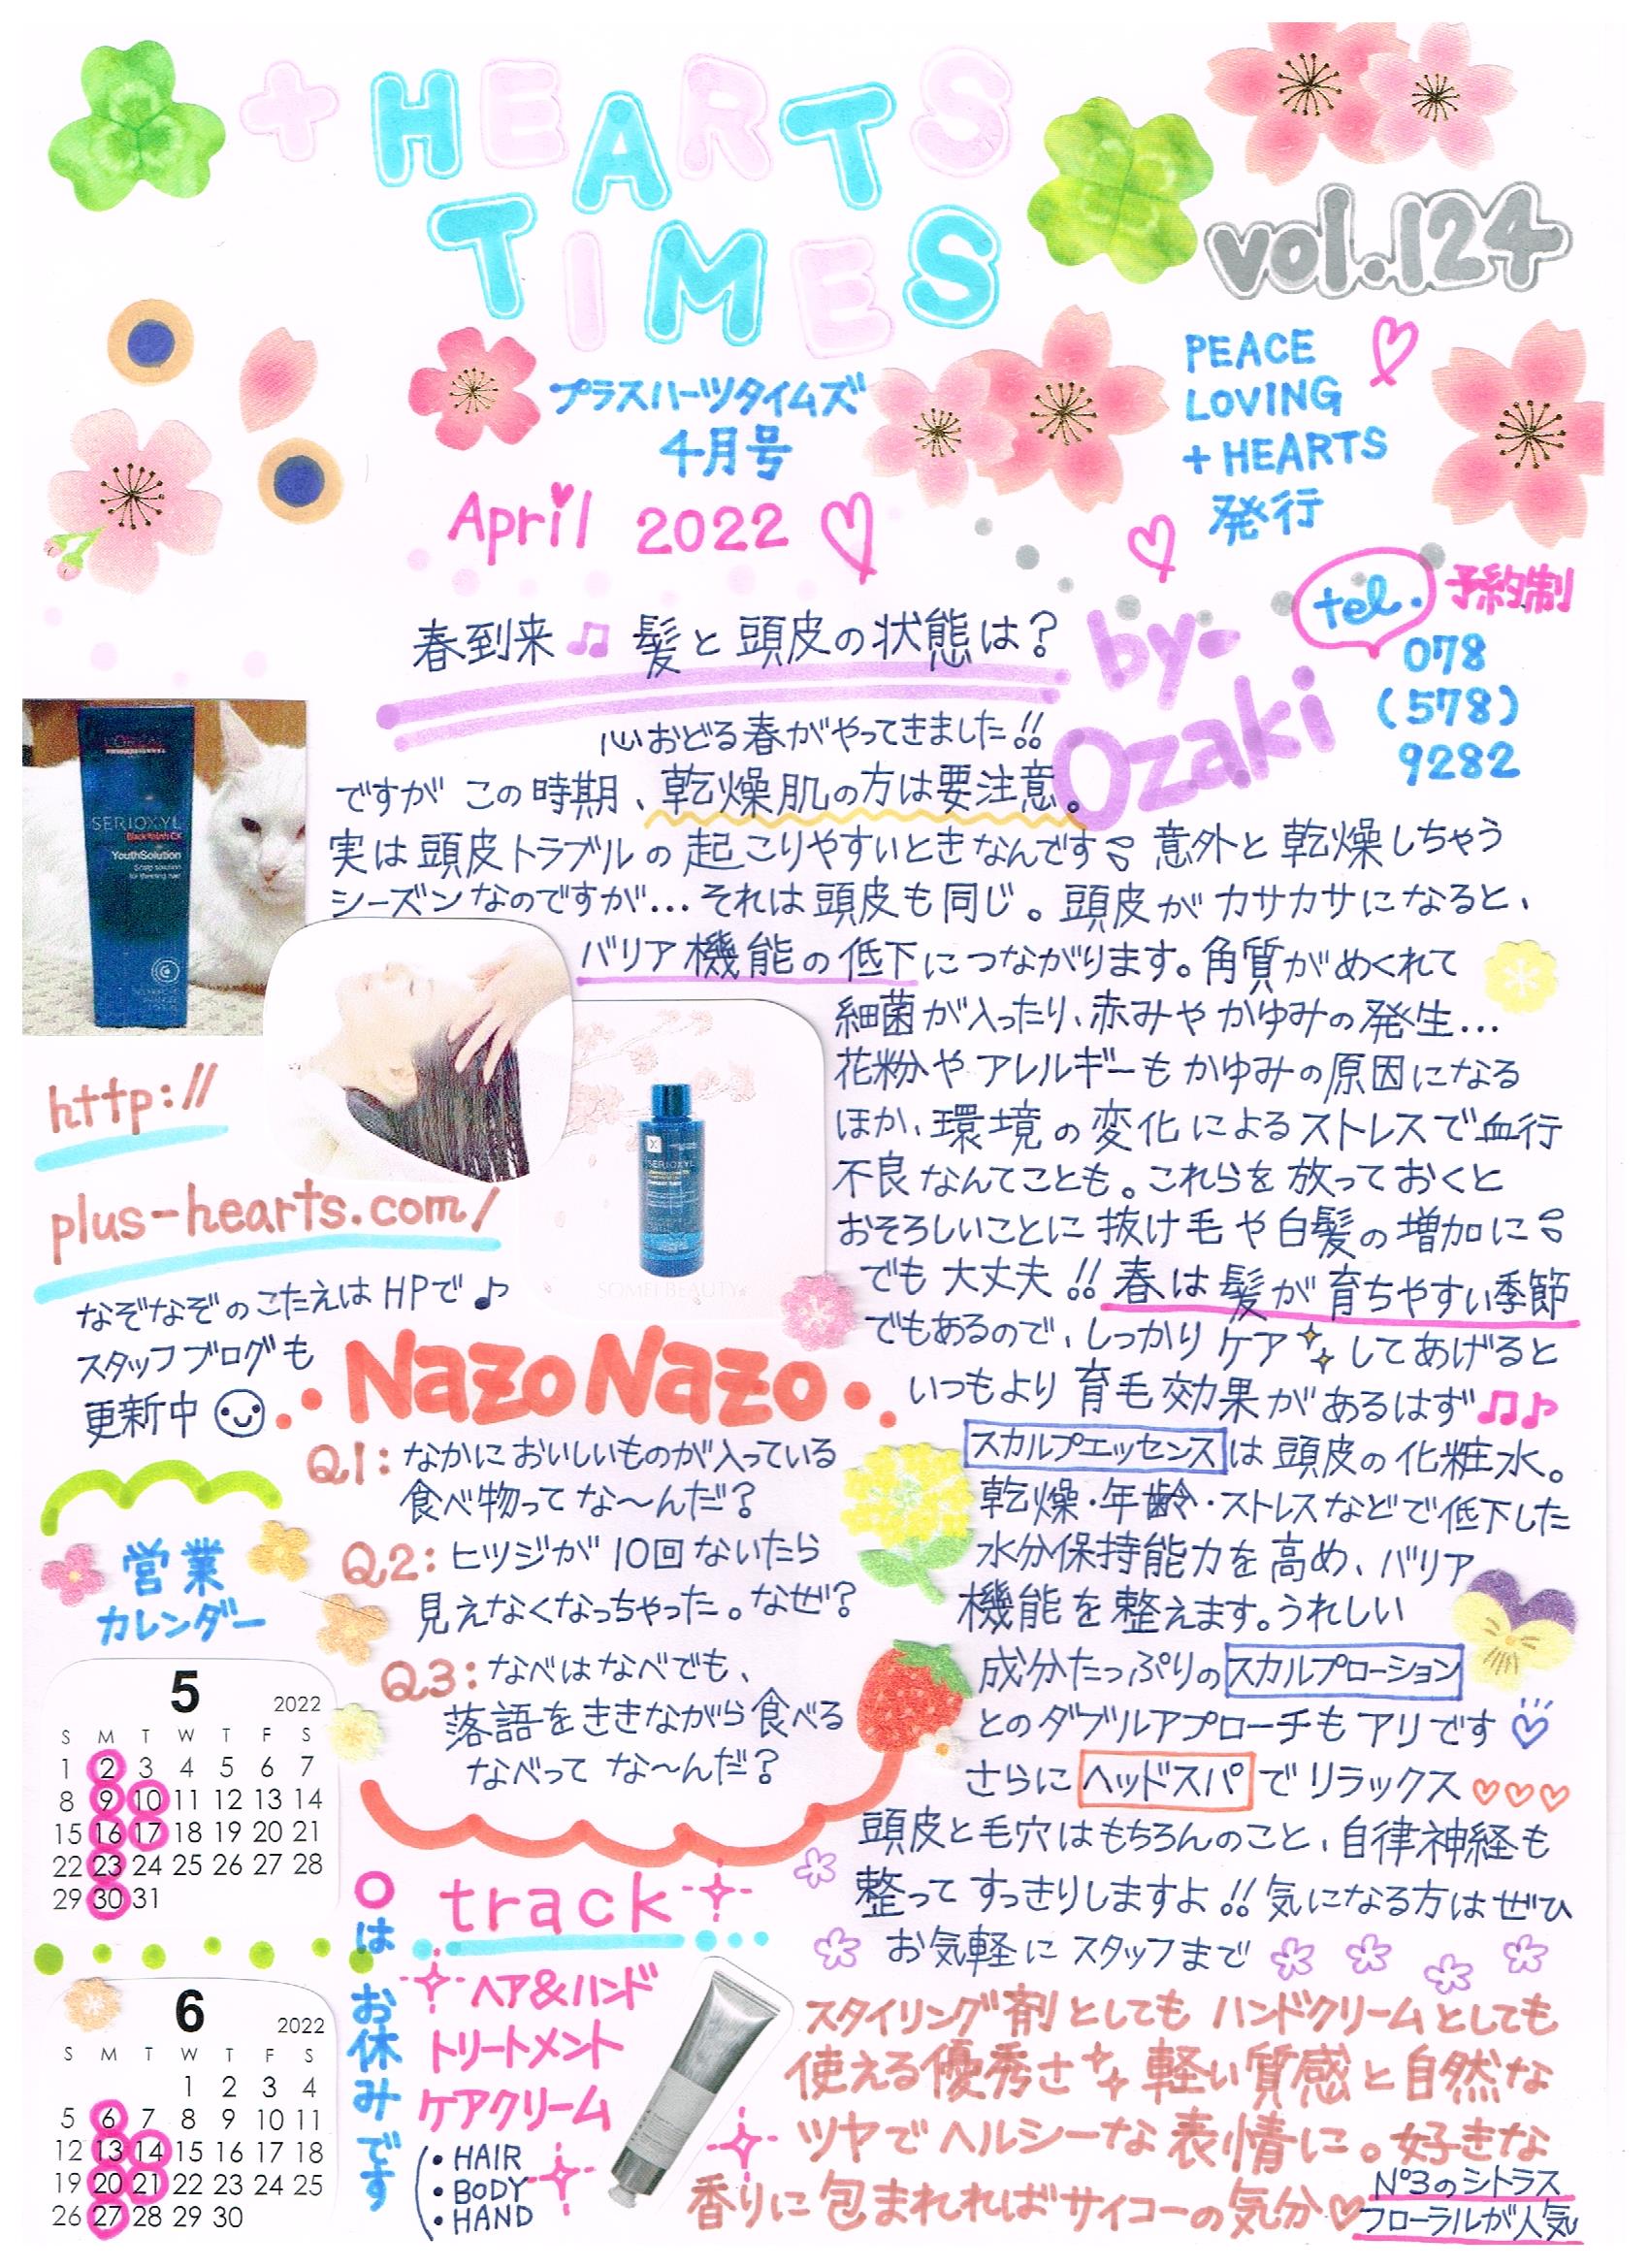 + HEARTS
TIMES
vol.124
プラスハーツタイムズ
4月号
April 2022
PEACE
LOVING
+ HEARTS
発行
tel. 予約制
078
(578)
9282
春到来♫ 髪と頭皮の状態は?
by-
Ozaki
心おどる春がやってきました!!
ですが この時期、乾燥肌の方は要注意。
実は頭皮トラブルの起こりやすいときなんです 意外と乾燥しちゃう
シーズンなのですが…それは頭皮も同じ。頭皮がカサカサになると、
バリア機能の低下につながります。角質がめくれて
細菌が入ったり、赤みやかゆみの発生…
花粉やアレルギーもかゆみの原因になる
ほか、環境の変化によるストレスで血行
不良なんてことも。これらを放っておくと
おそろしいことに抜け毛や白髪の増加に
でも大丈夫!!春は髪が育ちやすい季節
でもあるので、しっかりケアしてあげると
いつもより育毛効果があるはず♫♪
スカルプエッセンスは頭皮の化粧水。
乾燥・年齢・ストレスなどで低下した
水分保持能力を高め、バリア
機能を整えます。うれしい
成分たっぷりのスカルプローション
とのダブルアプローチもアリです♡
さらにヘッドスパでリラックス♡♡♡
頭皮と毛穴はもちろんのこと、自律神経も
整ってすっきりしますよ!!気になる方はぜひ
お気軽にスタッフまで
L'OREAL
SERIOXYL
YouthSolution
SERIOXYL
SOMEI BEAUTY
http://
plus-hearts.com/
なぞなぞのこたえはHPで♪
スタッフブログも
更新中
NazoNazo
Q1:なかにおいしいものが入っている
食べ物ってな〜んだ?
Q2:ヒツジが10回ないたら
見えなくなっちゃった。なぜ?
Q3:なべはなべでも、
落語をききながら食べる
なべってな〜んだ?
営業
カレンダー
5 2022
S M T W T F S
1 2 3 4 5 6 7
8 9 10 11 12 13 14
15 16 17 18 19 20 21
22 23 24 25 26 27 28
29 30 31
6 2022
S M T W T F S
1 2 3 4
5 6 7 8 9 10 11
12 13 14 15 16 17 18
19 20 21 22 23 24 25
26 27 28 29 30
○はお休みです
track
ヘア&ハンド
トリートメント
ケアクリーム
・HAIR
・BODY
・HAND
スタイリング剤としてもハンドクリームとしても
使える優秀さ 軽い質感と自然な
ツヤでヘルシーな表情に。好きな
香りに包まれればサイコーの気分♡
Nº3のシトラス
フローラルが人気